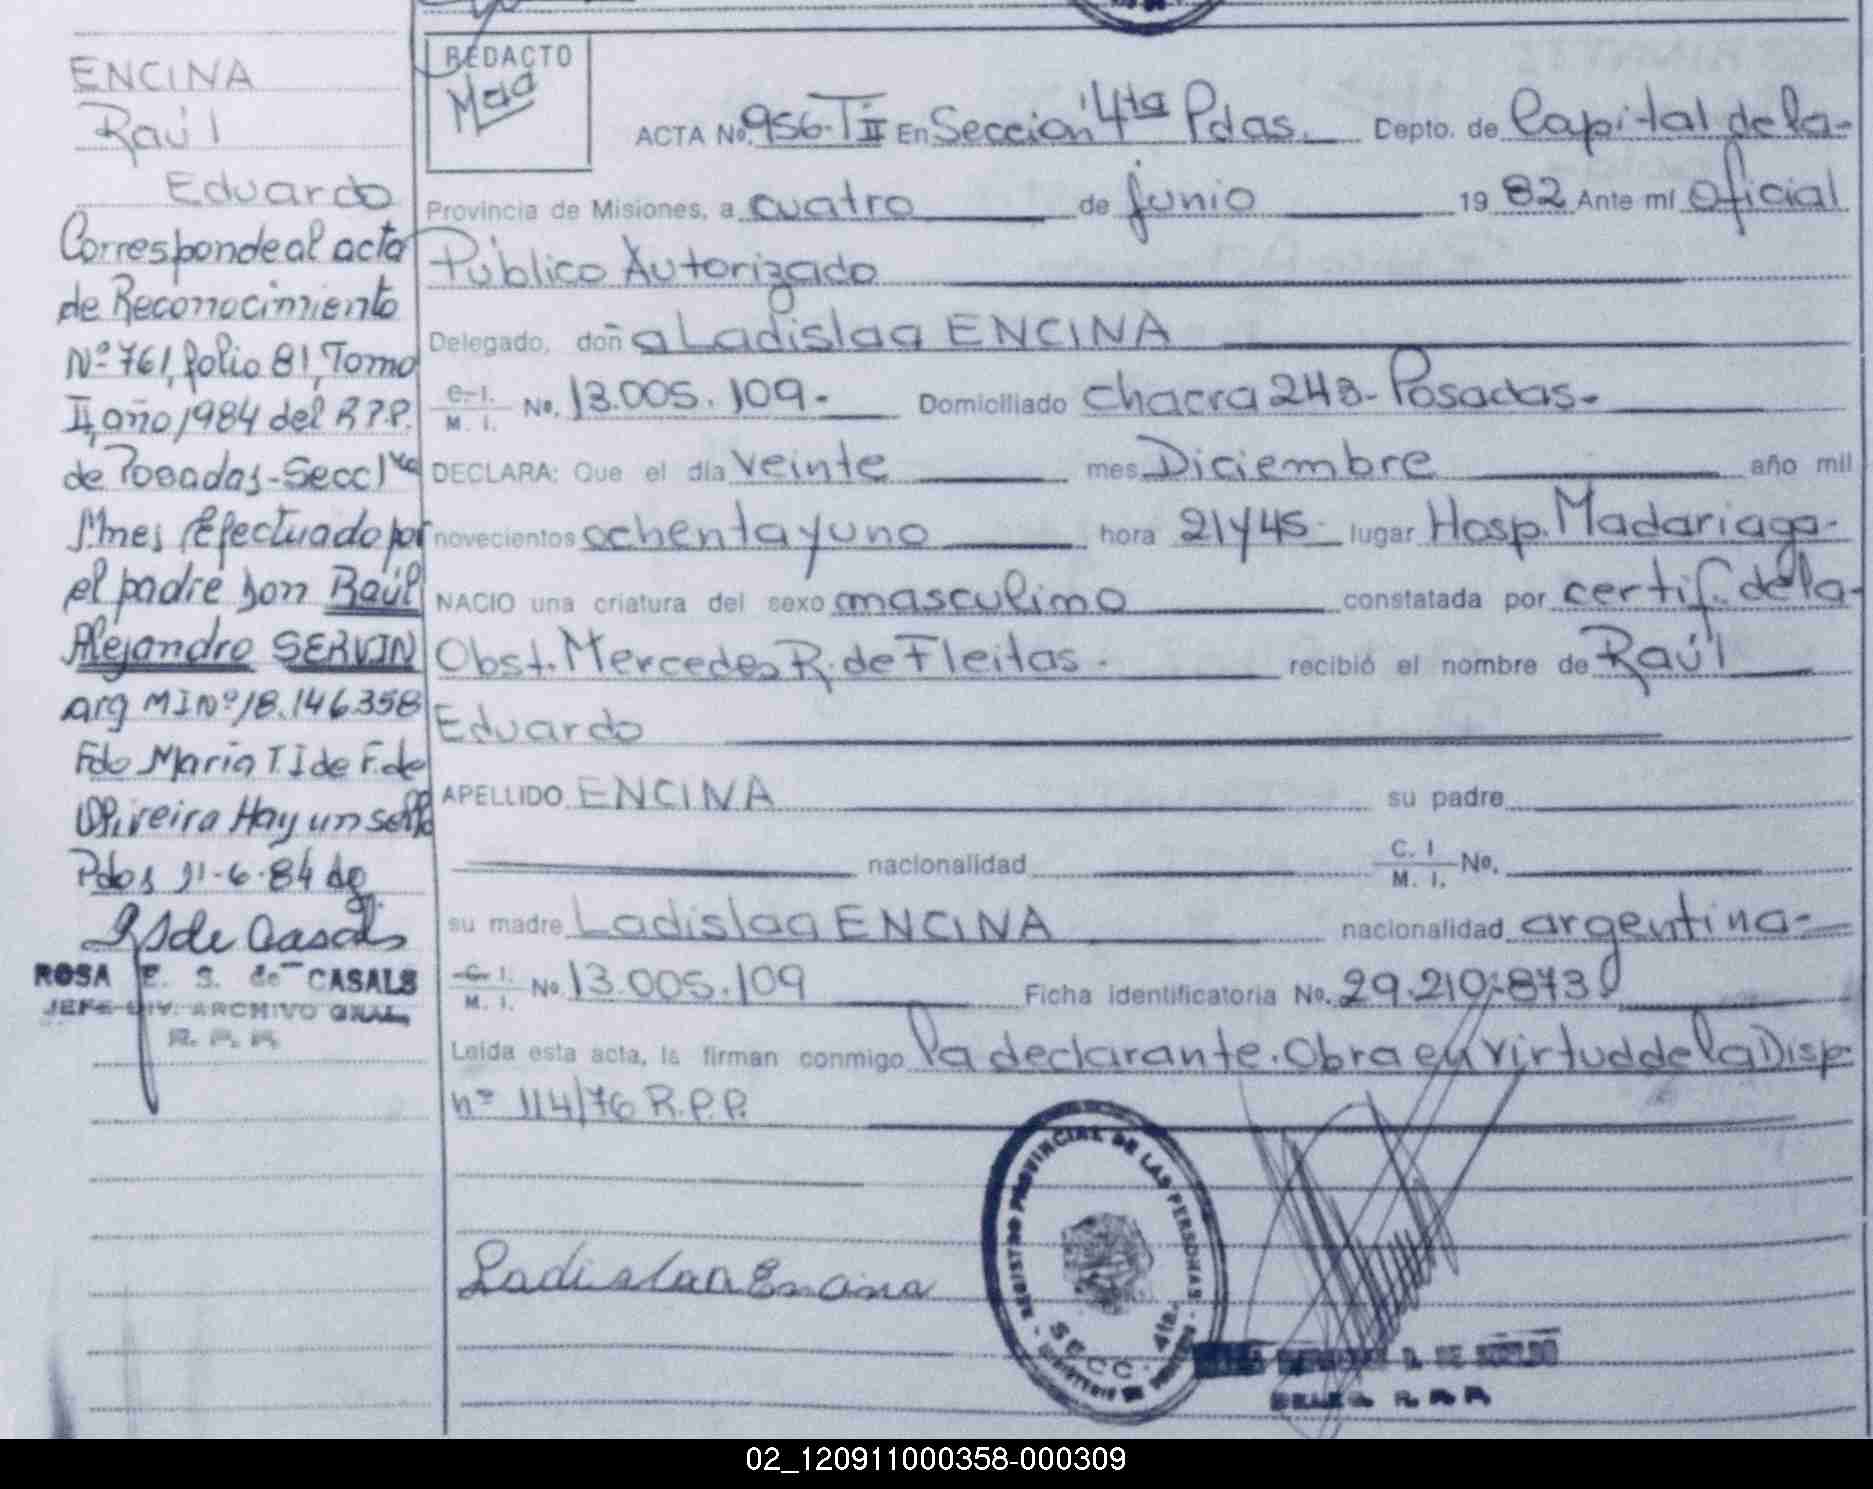 ENCINA
Raúl
Eduardo
Corresponde al acta
de Reconocimiento
Nº 761, folio 81, Tomo
II, año 1984 del R.P.P.
de Posadas - Secc 1ra
Mnes Efectuado por
el padre Don Raúl
Alejandro SERVIN
arg MI Nº 18.146.358
Fdo Maria T. I de F. de
Oliveira Hay un sello
Pdas 11-6-84 dg.
ROSA E. S. de CASALS
JEFE DIV. ARCHIVO GRAL.
R. P. P.
REDACTO
ACTA No. 956-T II En Sección 4ta Pdas. Depto. de Capital de la-
Provincia de Misiones, a cuatro de junio 19 82 Ante mí Oficial
Público Autorizado
Delegado, doña Ladislaa ENCINA
C. I. M. I. No. 13.005.109.- Domiciliado Chacra 243- Posadas.-
DECLARA: Que el día veinte mes Diciembre año mil
novecientos ochenta y uno hora 21 y 45- lugar Hosp. Madariaga-
NACIO una criatura del sexo masculino constatada por certif. de la-
Obst. Mercedes R. de Fleitas. recibió el nombre de Raúl
Eduardo
APELLIDO ENCINA su padre
nacionalidad C. I. M. I. No.
su madre Ladislaa ENCINA nacionalidad argentina-
C. I. M. I. No. 13.005.109 Ficha identificatoria No. 29.210.873
Leída esta acta, la firman conmigo la declarante. Obra en virtud de la Disp.
nº 114/76 R.P.P.
Ladislaa Encina
REGISTRO PROVINCIAL DE LAS PERSONAS
SECC. 4ta.
02_120911000358-000309